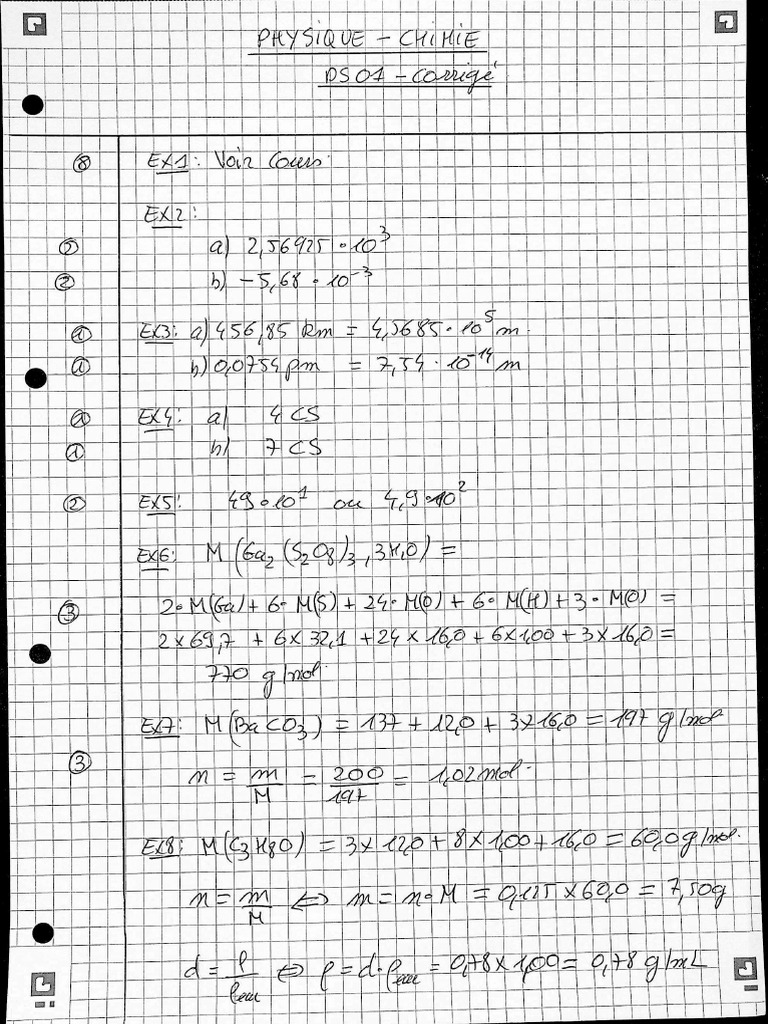 PHYSIQUE - CHIMIE
DS01 - Corrigé
⑧ EX1: Voir Cours.
EX2:
② a) 2,56925 • 10³
② b) -5,68 • 10⁻³
① EX3: a) 456,85 km = 4,5685 • 10⁵ m.
① b) 0,0754 pm = 7,54 • 10⁻¹⁴ m
① EX4: a) 4 CS
① b) 7 CS
② EX5: 49 • 10¹ ou 4,9 • 10²
EX6: M(Ga₂(S₂O₈)₃, 3H₂O) =
③ 2 • M(Ga) + 6 • M(S) + 24 • M(O) + 6 • M(H) + 3 • M(O) =
2 × 69,7 + 6 × 32,1 + 24 × 16,0 + 6 × 1,00 + 3 × 16,0 =
770 g/mol.
EX7: M(BaCO₃) = 137 + 12,0 + 3 × 16,0 = 197 g/mol
③ n = m/M = 200/197 = 1,02 mol.
EX8: M(C₃H₈O) = 3 × 12,0 + 8 × 1,00 + 16,0 = 60,0 g/mol.
n = m/M ⇔ m = n • M = 0,125 × 60,0 = 7,50 g
d = ρ/ρeau ⇔ ρ = d • ρeau = 0,78 × 1,00 = 0,78 g/mL